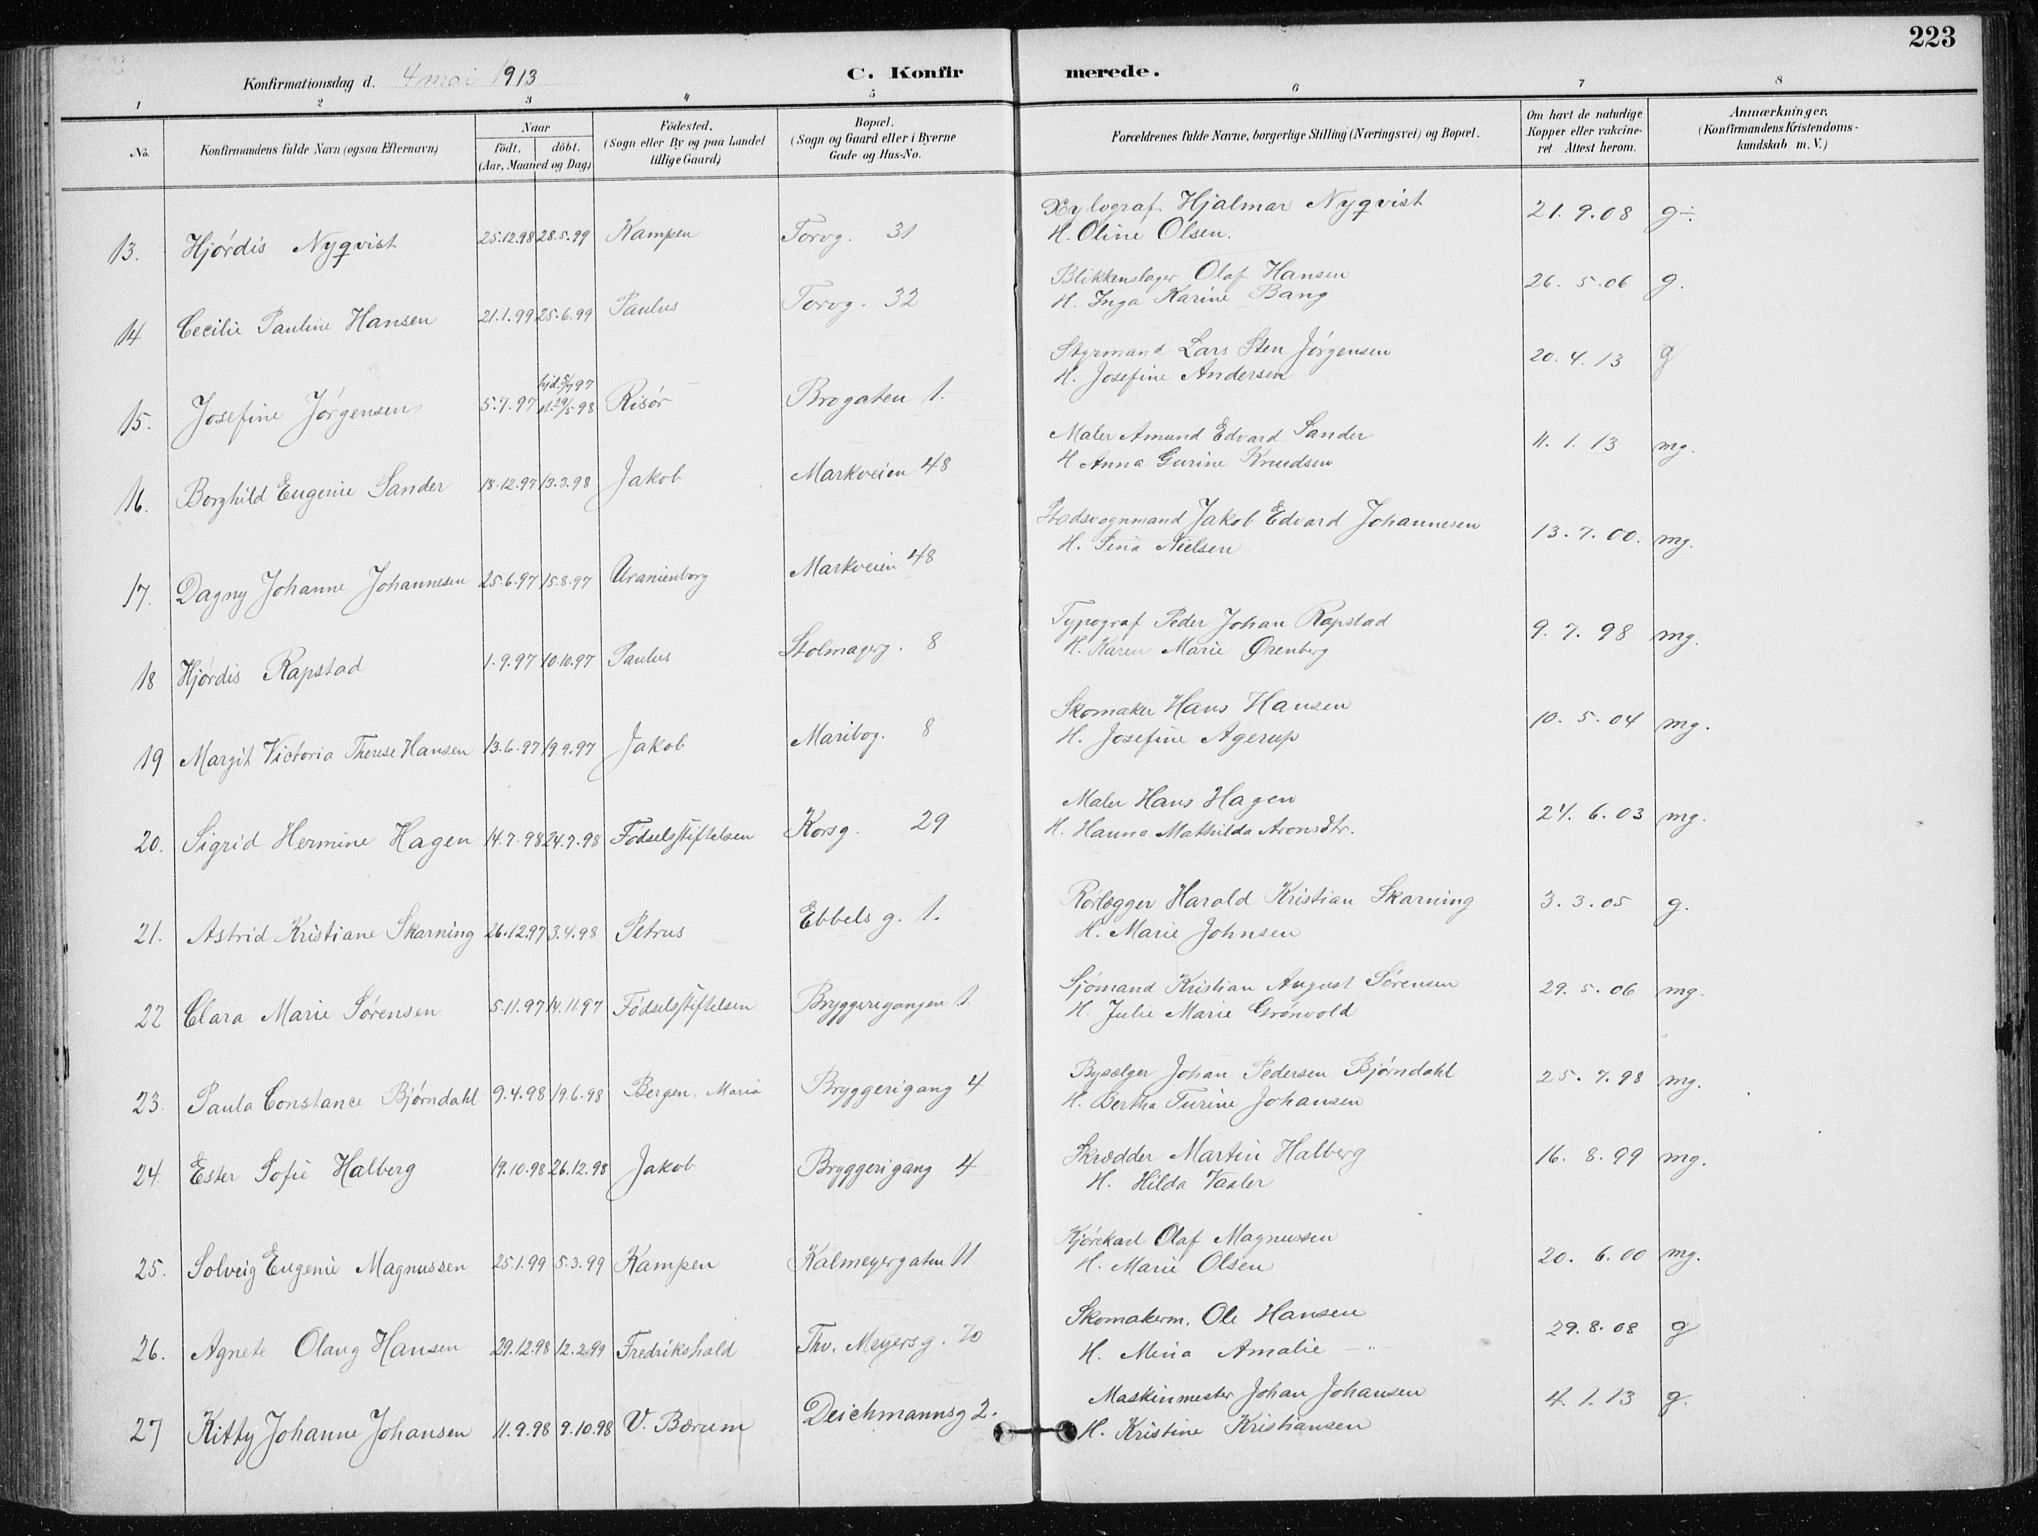 223
Konfirmationsdag d. 4 mai 1913
C. Konfirmerede.
1 2 3 4 5 6 7 8
No. Konfirmandens fulde Navn (ogsaa Efternavn)
Naar født. døbt. (Aar, Maaned og Dag)
Fødested. (Sogn eller By og paa Landet tillige Gaard)
Bopæl. (Sogn og Gaard eller i Byerne Gade og Hus-No.
Forældrenes fulde Navne, borgerlige Stilling (Næringsvei) og Bopæl.
Om havt de naturlige Kopper eller vakcineret. Attest herom.
Anmærkninger. (Konfirmandens Kristendomskundskab m. V.)
13. Hjørdis Nyqvist 25.12.98 28.5.99 Kampen Torvg. 31 Xylograf Hjalmar Nyqvist 21.9.08 g÷
H. Oline Olsen.
14 Cecilie Pauline Hansen 21.1.99 25.6.99 Paulus Torvg. 32 Blikkenslager Olaf Hansen 26.5.06 g.
H. Inga Karine Bang
15. Josefine Jørgensen 5.7.97 hjd 5/7 97 29/5 98 Risør Brogaten 1. Styrmand Lars Sten Jørgensen 20.4.13 g
H. Josefine Andersen
16. Borghild Eugenie Sander 18.12.97 13.3.98 Jakob Markveien 48 Maler Amund Edvard Sander 11.1.13 mg.
H Anna Gurine Knudsen
17. Dagny Johanne Johannesen 25.6.97 15.8.97 Uranienborg Markveien 48 Stadsvognmand Jakob Edvard Johannesen 13.7.00. mg.
H. Sina Nielsen
18 Hjørdis Rapstad 1.9.97 10.10.97 Paulus Stolmagerg. 8 Typograf Peder Johan Rapstad 9.7.98 mg.
H. Karen Marie Ørenberg
19 Margit Victoria Therese Hansen 13.6.97 19.9.97 Jakob Maribog. 8 Skomaker Hans Hansen 10.5.04 mg.
H. Josefine Agerup
20. Sigrid Hermine Hagen 14.7.98 24.7.98 Fødselsstiftelsen Korsg. 29 Maler Hans Hagen 24.6.03 mg.
H. Hanna Mathilda Aronsdtr.
21. Astrid Kristiane Skarning 26.12.97 3.4.98 Petrus Ebbels g. 1. Rørlægger Harald Kristian Skarning 3.3.05 g.
H. Marie Johnsen
22 Clara Marie Sørensen 5.11.97 14.11.97 Fødselsstiftelsen Bryggerigangen 1. Sjømand Kristian August Sørensen 29.5.06 mg.
H. Julie Marie Grønvold
23. Paula Constance Bjørndahl 9.4.98 19.6.98 Bergen, Maria Bryggerigang 4 Bysælger Johan Pedersen Bjørndahl 25.7.98 mg.
H. Bertha Turine Johansen
24. Ester Sofie Halberg 19.10.98 26.12.98 Jakob Bryggerigang 4 Skrædder Martin Halberg 16.8.99 mg.
H. Hilda Vaaler
25. Solveig Eugenie Magnussen 25.1.99 5.3.99 Kampen Kalmeyergaten 11 Kjørekarl Olaf Magnussen 20.6.00 mg.
H. Marie Olsen
26. Agnete Olaug Hansen 29.12.98 12.2.99 Fredrikshald Thv. Meyersg. 70 Skomakerm. Ole Hansen 29.8.08 g
H. Mina Amalie —"—
27 Kitty Johanne Johansen 11.9.98 9.10.98 V. Bærum Deichmannsg 2. Maskinmester Johan Johansen 4.1.13 g.
H. Kristine Kristiansen